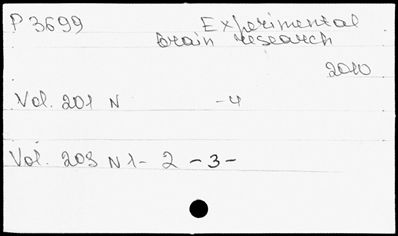 P 3699 Experimental
brain research
2010
Vol. 201 N -4
Vol. 203 N 1- 2 -3-